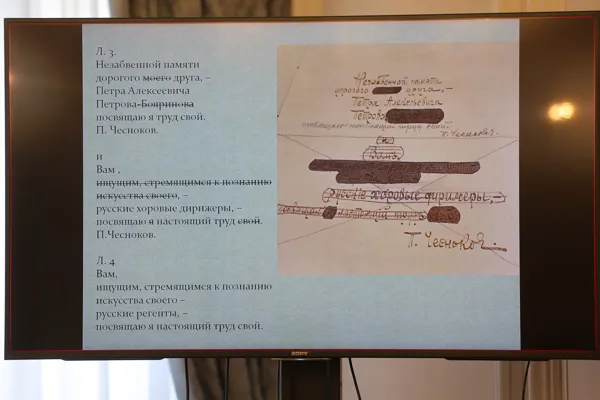 Л. 3.
Незабвенной памяти
дорогого моего друга, –
Петра Алексеевича
Петрова-Бояринова
посвящаю я труд свой.
П. Чесноков.
и
Вам ,
ищущим, стремящимся к познанию
искусства своего, –
русские хоровые дирижеры, –
посвящаю я настоящий труд свой.
П.Чесноков.
Л. 4
Вам,
ищущим, стремящимся к познанию
искусства своего –
русские регенты, –
посвящаю я настоящий труд свой.
Незабвенной памяти
дорогого друга, –
Петра Алексеевича
Петрова
посвящаю настоящий труд свой.
П. Чесноков.
и
Вамъ,
русские хоровые дирижеры, –
настоящий трудъ
П. Чесноков.
SONY